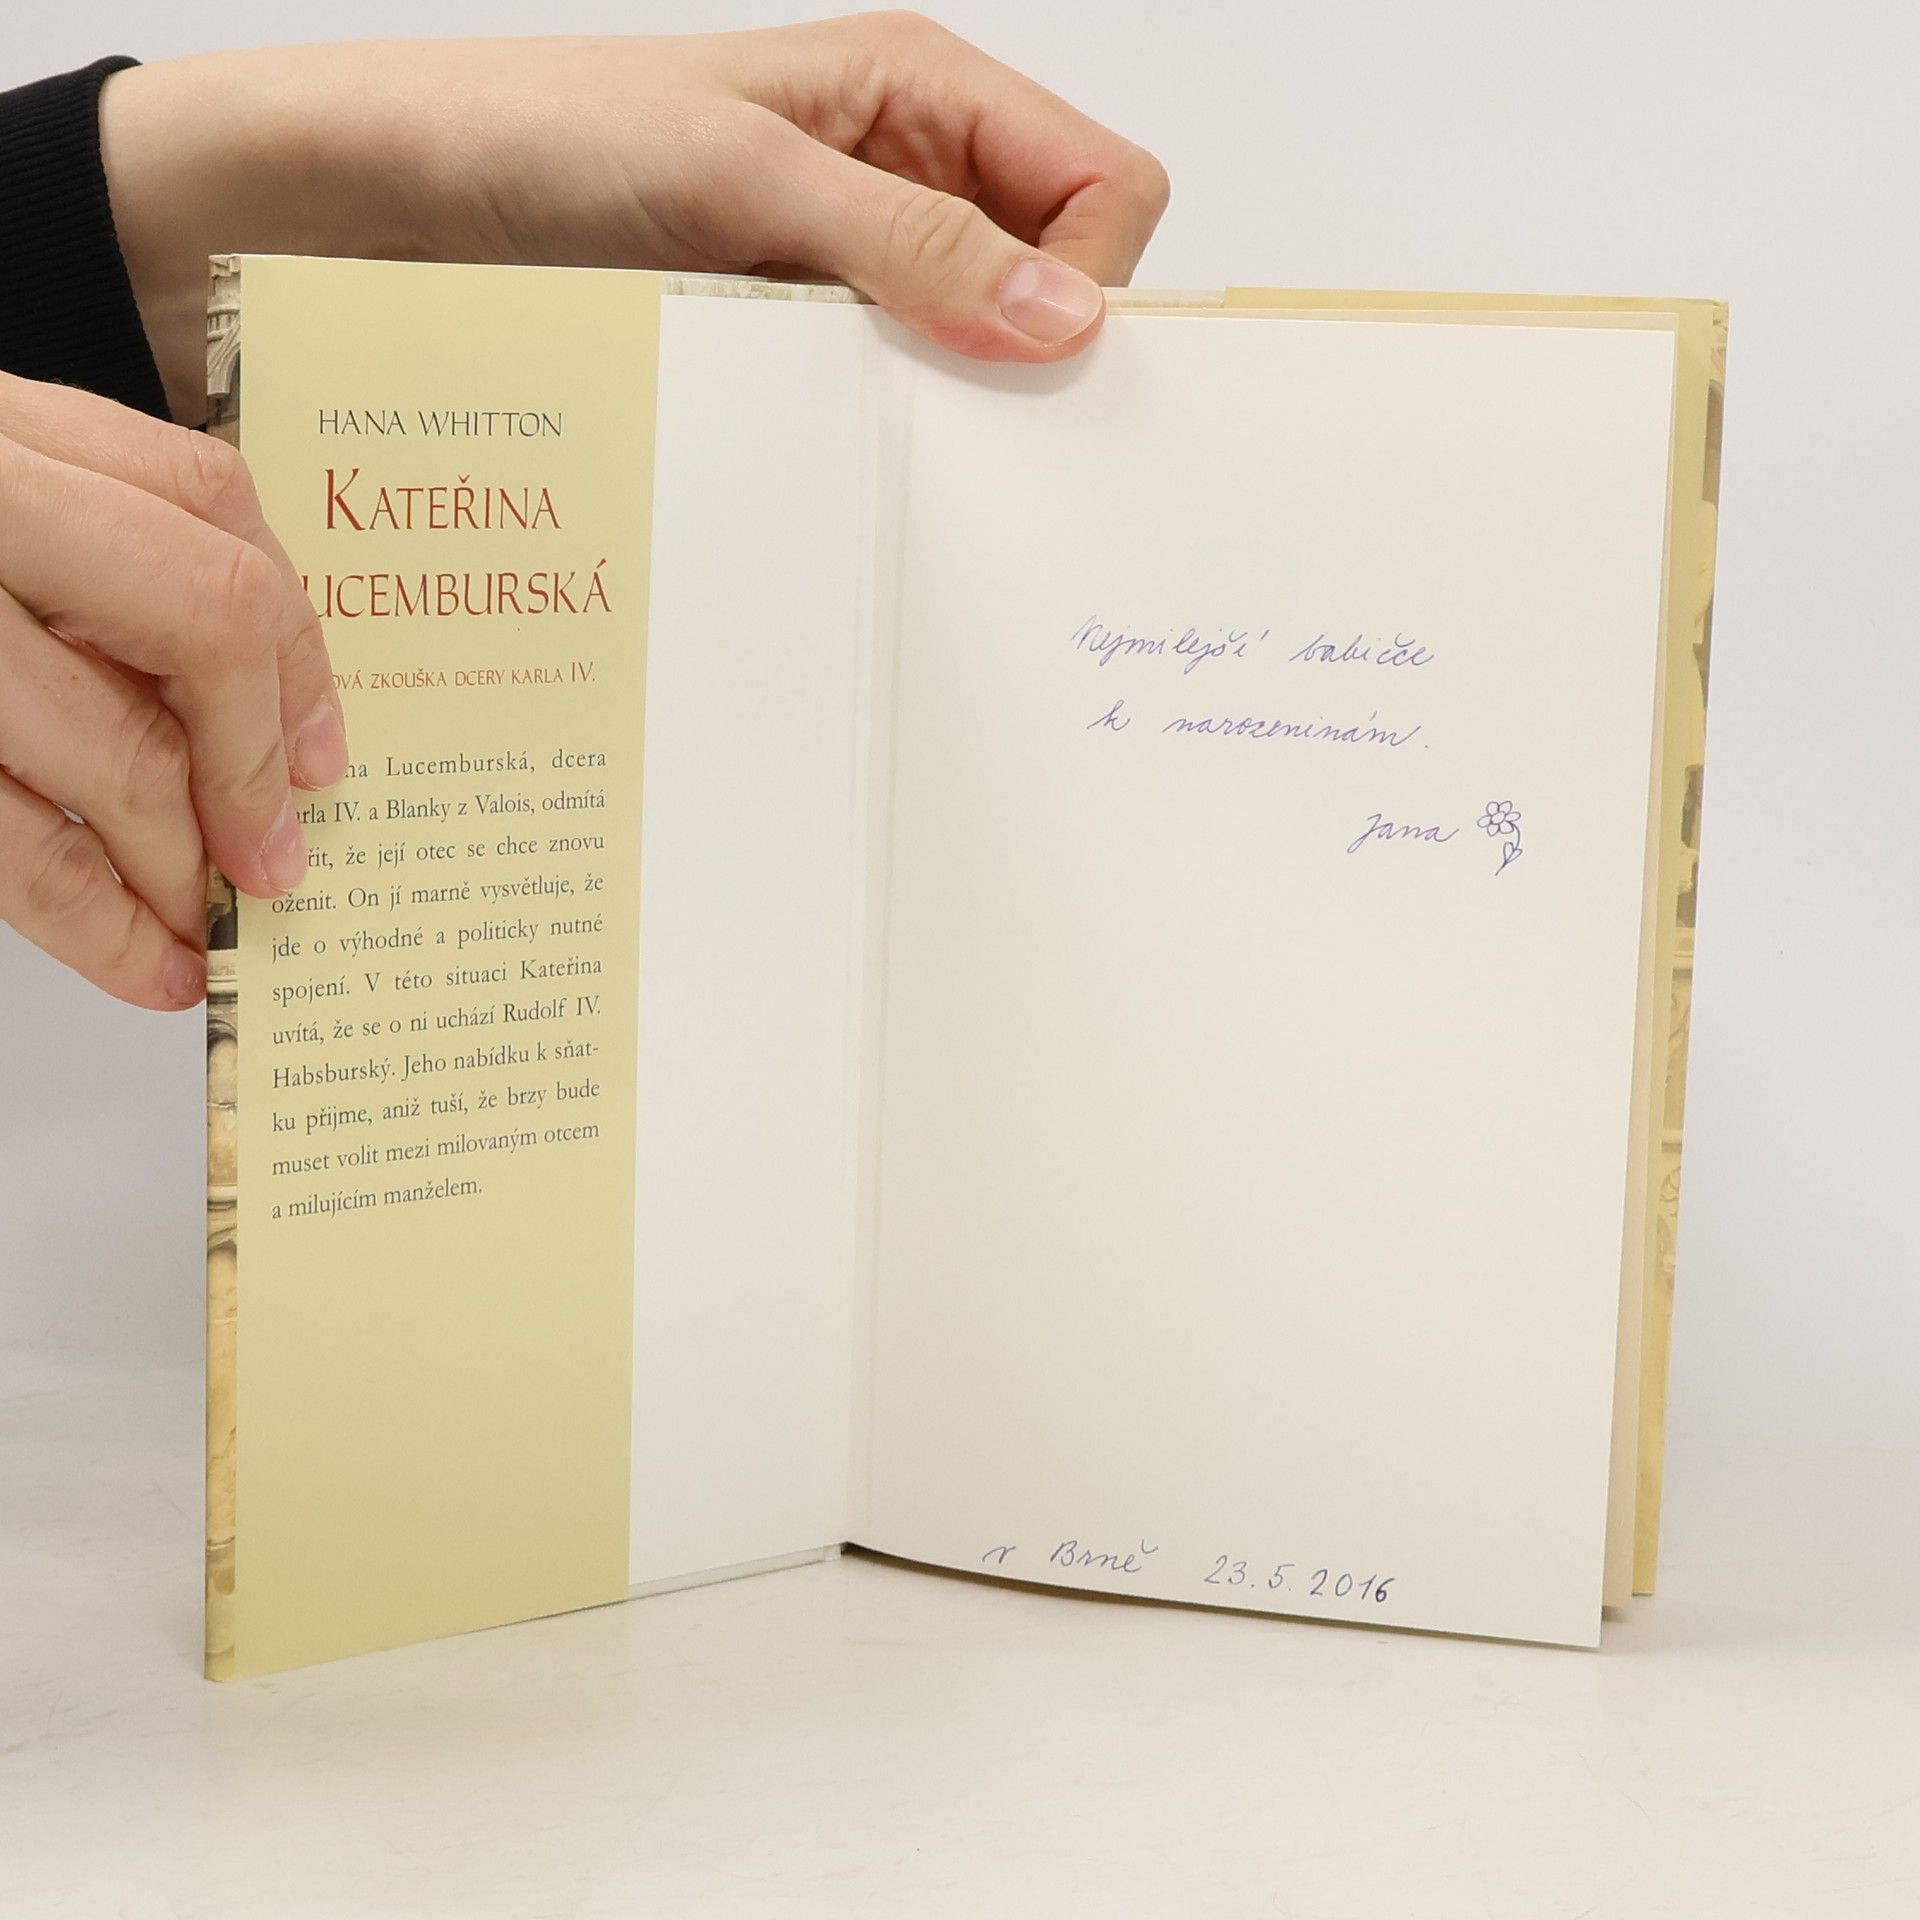 HANA WHITTON
KATEŘINA
UCEMBURSKÁ
ZKOUŠKA DCERY KARLA IV.
Lucemburská, dcera
IV. a Blanky z Valois, odmítá
že její otec se chce znovu
oženit. On jí marně vysvětluje, že
jde o výhodné a politicky nutné
spojení. V této situaci Kateřina
uvítá, že se o ni uchází Rudolf IV.
Habsburský. Jeho nabídku k sňat-
ku přijme, aniž tuší, že brzy bude
muset volit mezi milovaným otcem
a milujícím manželem.
Nejmilejší babičce
k narozeninám.
Jana
v Brně 23.5.2016